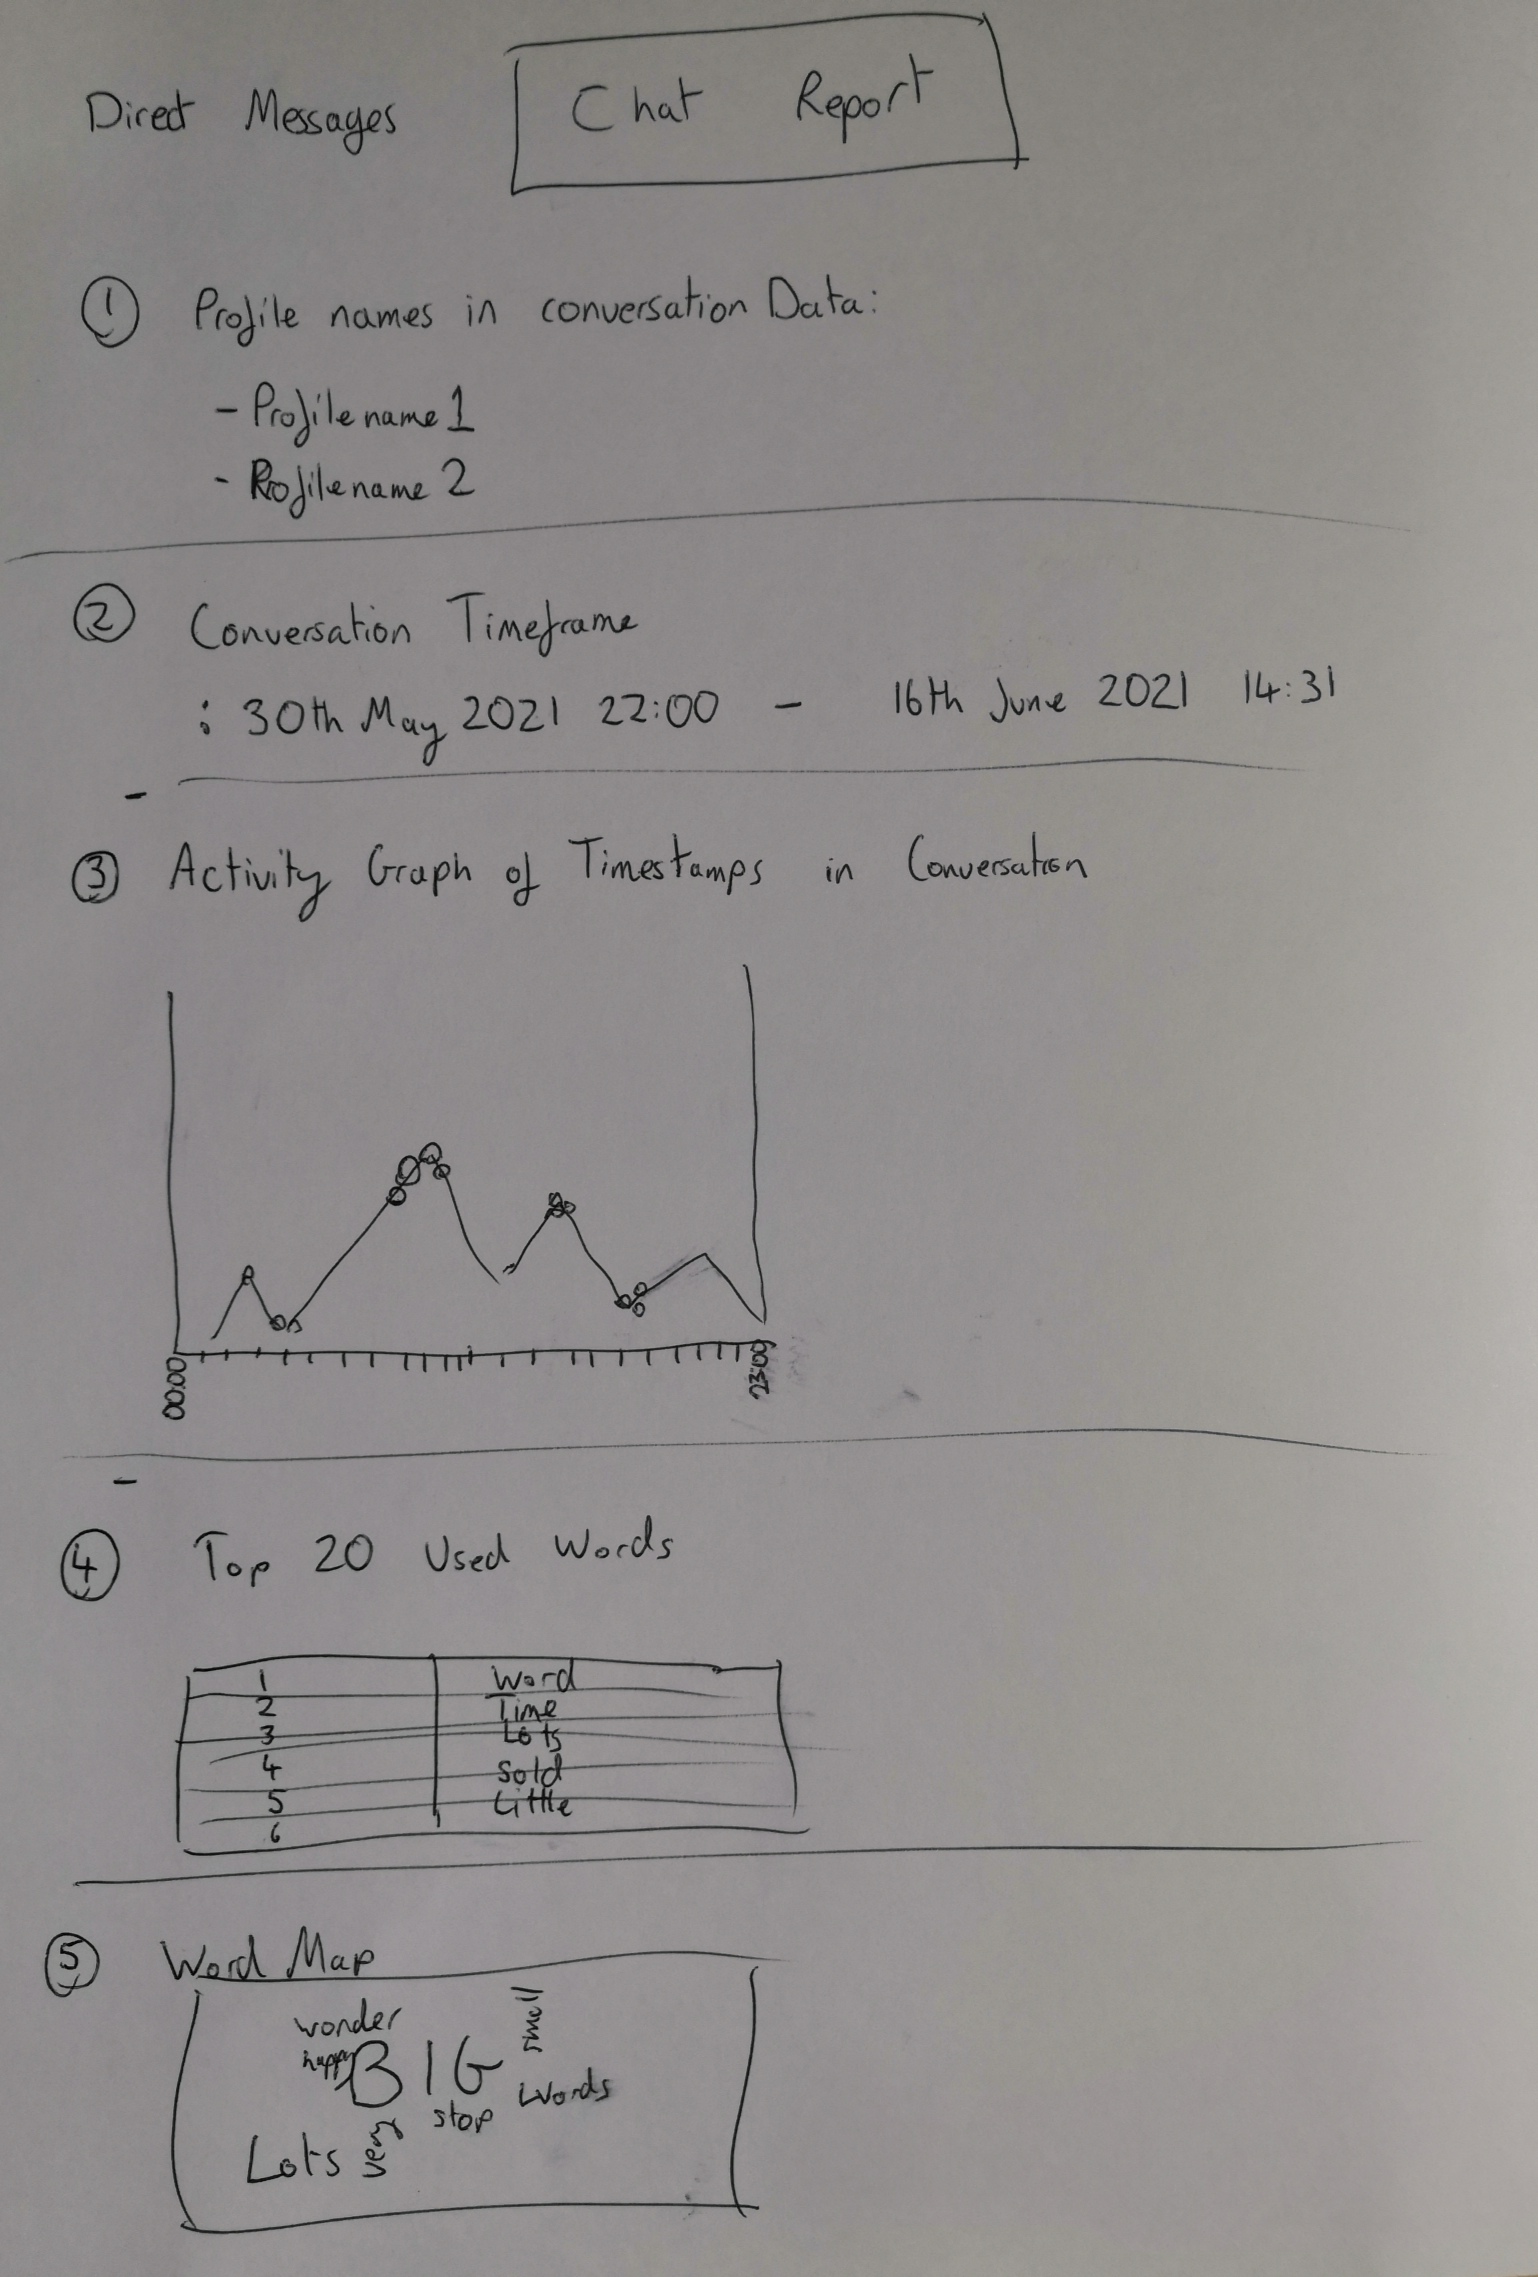 Direct Messages Chat Report
1 Profile names in conversation Data:
- Profilename 1
- Profilename 2
2 Conversation Timeframe
: 30th May 2021 22:00 - 16th June 2021 14:31
3 Activity Graph of Timestamps in Conversation
00:00 23:00
4 Top 20 Used Words
1 Word
2 Time
3 Lots
4 Sold
5 Little
6
5 Word Map
wonder
small
happy
BIG
words
stop
very
Lots